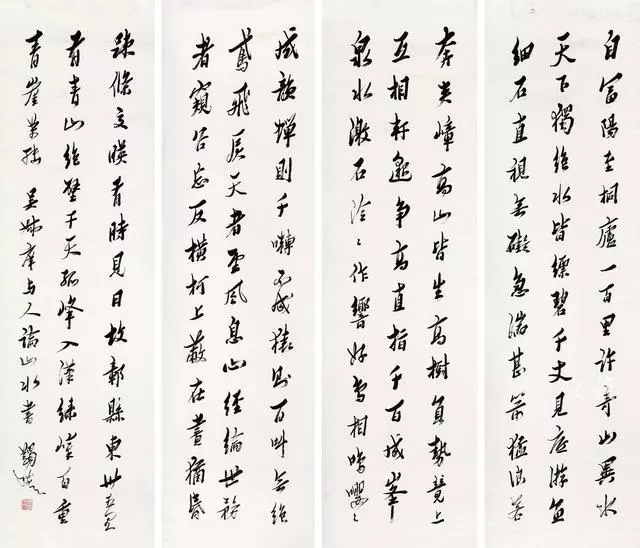 自富陽至桐廬一百里許奇山異水
天下獨絕水皆縹碧千丈見底游魚
細石直視無礙急湍甚箭猛浪若
奔夾嶂高山皆生高樹負勢競上
互相軒邈爭高直指千百成峯
泉水激石泠〻作響好鳥相鳴嚶〻
成韻蟬則千囀不成猿則百叫無絕
鳶飛戾天者望風息心經綸世務
者窺谷忘反橫柯上蔽在晝猶昏
疎條交暎有時見日故鄣縣東卅五里
有青山絕壁干天孤峰入漢綠嶂百重
青崖萬轉 吳叔庠与人論山水書 蠲戲